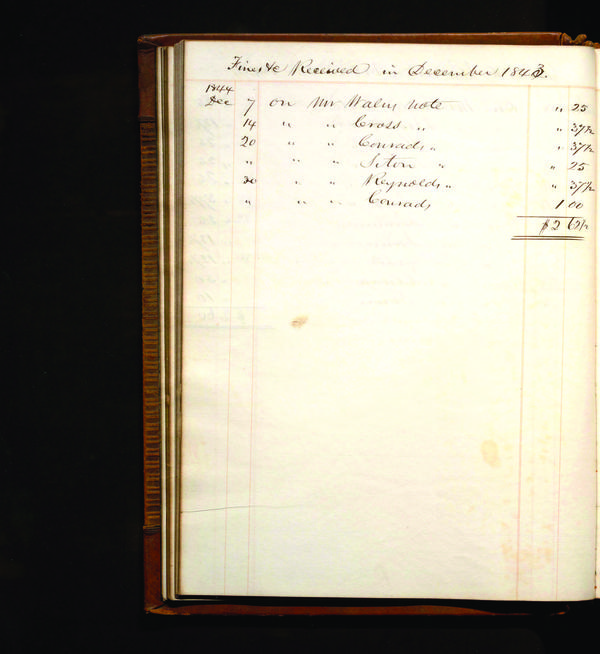 Fines &c Received in December 1843.
1844
Dec 7 on Mr Waln's note " 25
14 " " Cross " " 37½
20 " " Conrads " " 37½
" " " " " 25
30 " " Reynolds " " 37½
" " " Conrads 1 00
$2 62½